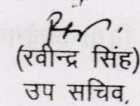 (रवीन्द्र सिंह)
उप सचिव